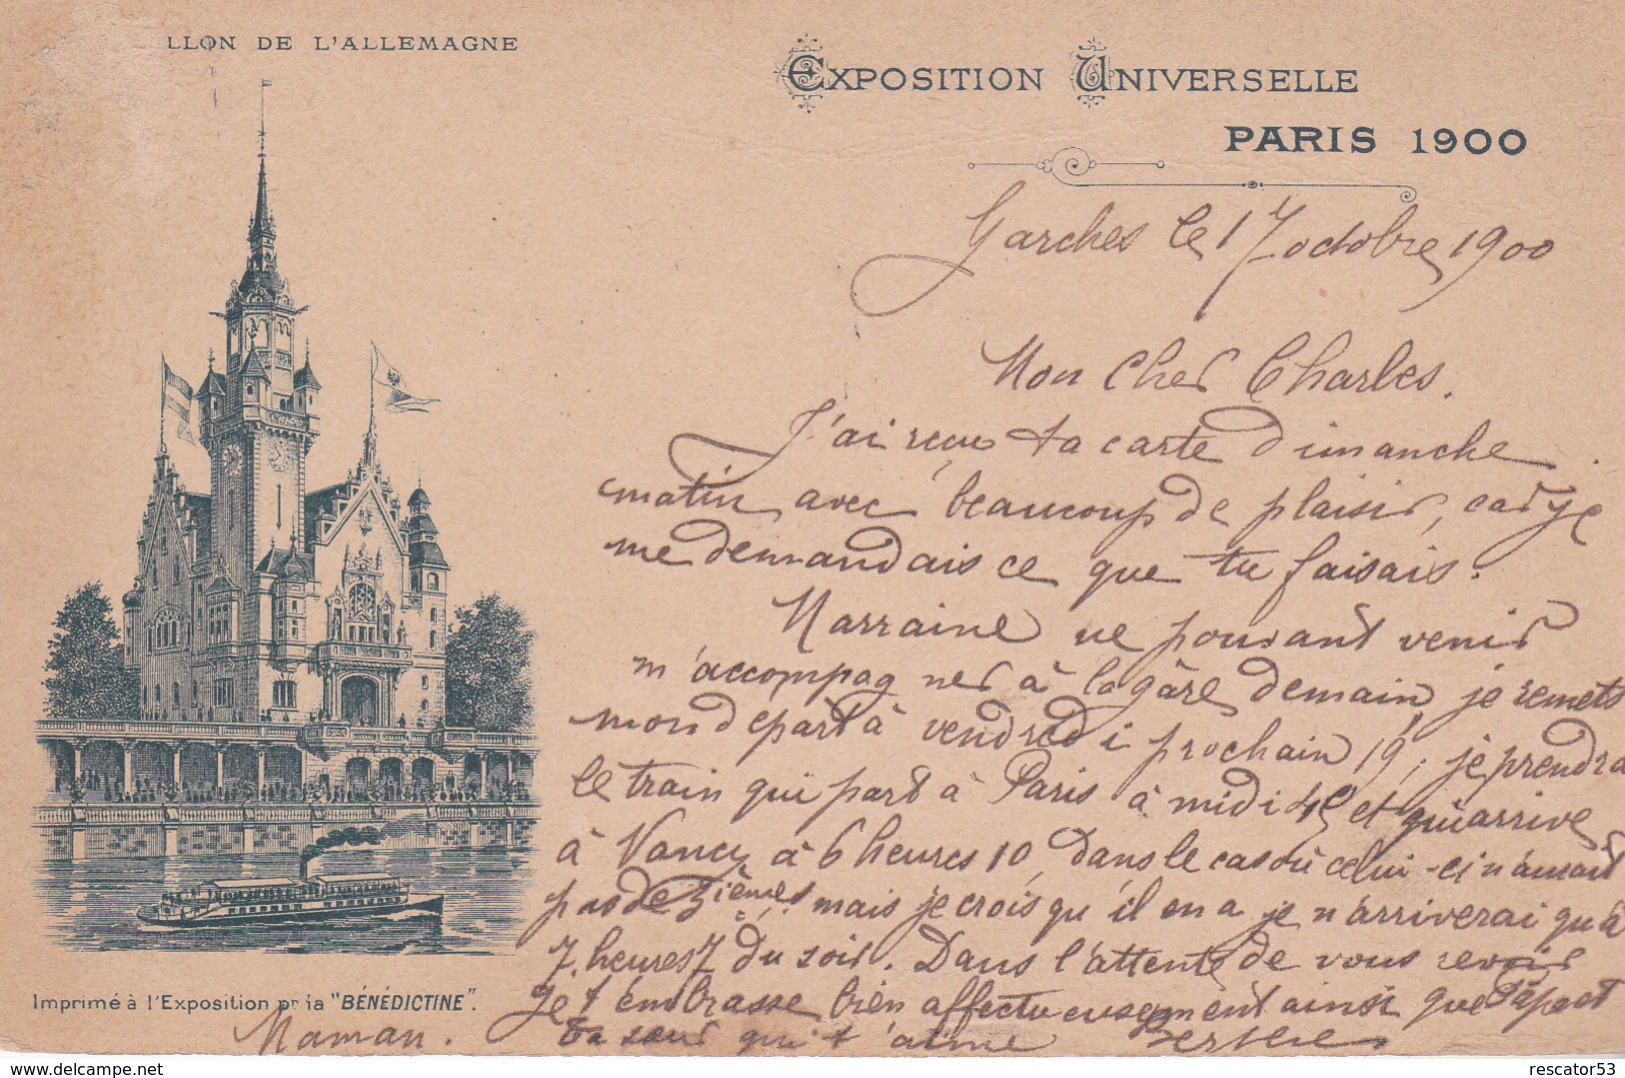 LLON DE L'ALLEMAGNE
EXPOSITION UNIVERSELLE
PARIS 1900
Garches le 17 octobre 1900
Mon cher Charles.
J'ai reçu ta carte dimanche
matin avec beaucoup de plaisir, car je
me demandais ce que tu faisais.
Marraine ne pouvant venir
m'accompagner à la gâre demain je remets
mon départ à vendredi prochain 19, je prendra
le train qui part à Paris à midi et qui arrive
à Nancy à 6 heures 10, dans le cas où celui-ci n'aurait
pas de 3ièmes mais je crois qu'il en a je n'arriverai qu'à
7 heures 7 du soir. Dans l'attente de vous revoir
je t'embrasse bien affectueusement ainsi que Papa et
Maman. ta sœur qui t'aime Berthe
Imprimé à l'Exposition pr la "BÉNÉDICTINE".
https://www.delcampe.net
rescator53